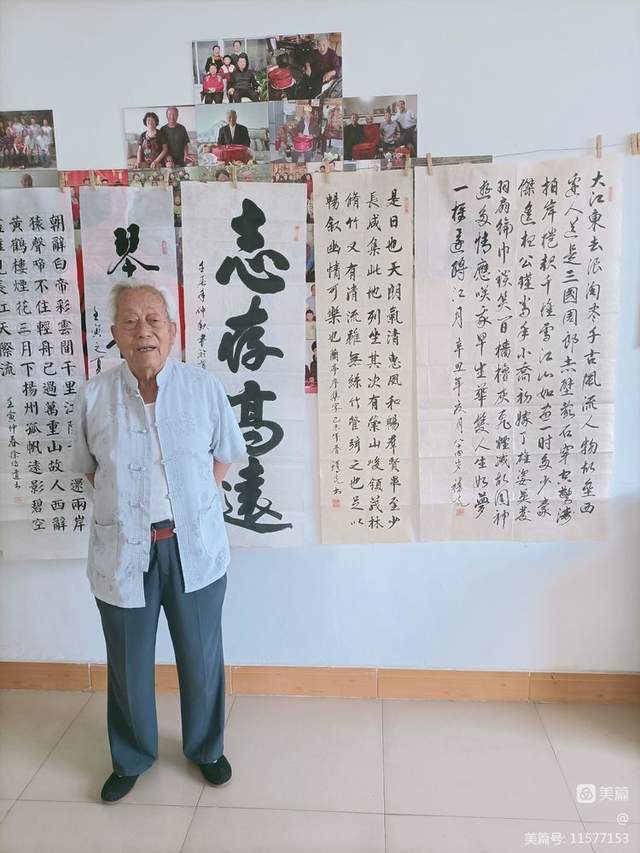 大江東去浪淘盡千古風流人物故壘西
邊人道是三國周郎赤壁亂石穿空驚濤
拍岸捲起千堆雪江山如畫一時多少豪
傑遙想公瑾當年小喬初嫁了雄姿英發
羽扇綸巾談笑間檣櫓灰飛煙滅故國神
遊多情應笑我早生華髮人生如夢
一樽還酹江月 辛丑年
是日也天朗氣清惠風和暢群賢畢至少
長咸集此地列坐其次有崇山峻嶺茂林
脩竹又有清流雖無絲竹管絃之也足以
暢敘幽情可樂也蘭亭序
志存高遠
琴
壬寅之夏
朝辭白帝彩雲間千里江還兩岸
猿聲啼不住輕舟已過萬重山故人西辭
黃鶴樓煙花三月下揚州孤帆遠影碧空
盡唯見長江天際流
壬寅仲春徐
美篇
@
美篇号: 11577153